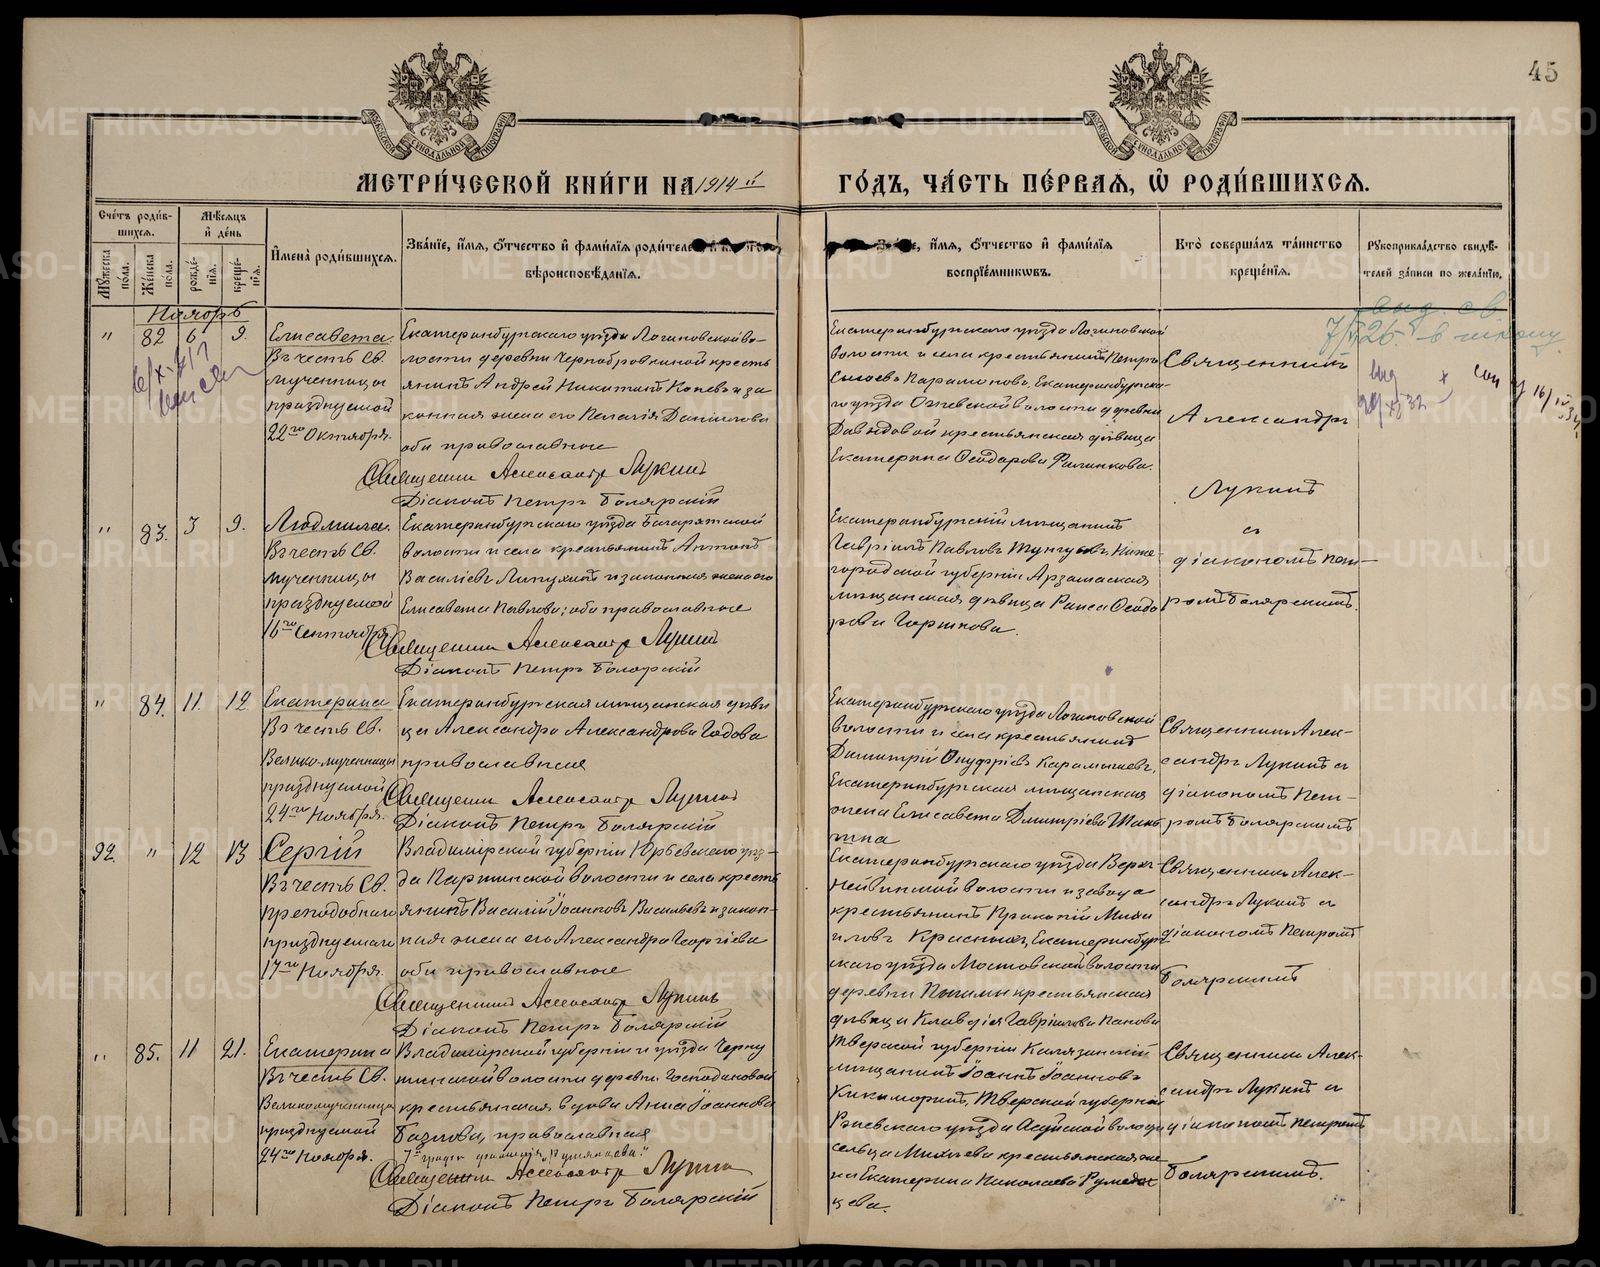 45
МЕТРИ́ЧЕСКОЙ КНИ́ГИ НА 1914 й
ГО́ДЪ, ЧА́СТЬ ПЕ́РВАЯ, Ѡ РОДИ́ВШИХСЯ.
Сче́тъ роди́в-
шихся.
Му́жеска по́ла.
Же́нска по́ла.
Мѣ́сяцъ
и҆ де́нь
рожде́нїя.
креще́нїя.
И҆мена̀ роди́вшихся.
Зва́нїе, и҆́мя, ѻ҆́тчество и҆ фами́лїя роди́теле
вѣроисповѣ́данїя.
е, и҆́мя, ѻ҆́тчество и҆ фами́лїя
воспрїе́мниковъ.
Кто̀ соверша́лъ та́инство
креще́нїя.
Рꙋкоприкла́дство свидѣ́-
телей за́писи по жела́нїю.
Ноябрь
" 82 6 9.
Елисавета.
Въ честь Св.
мученницы
празднуемой
22го Октября.
Екатеринбургскаго уѣзда Логиновской во-
лости деревни Чернобровкиной кресть
янинъ Андрей Никитинъ Коневъ и за
конная жена его Пелагія Данилова
оба православные
Священникъ Александръ Лукинъ
Діаконъ Петръ Боляр­скій
Екатеринбургскаго уѣзда Логиновской
волости и села крестьянинъ Петръ
Сысоевъ Парамоновъ, Екатеринбургска-
го уѣзда Огневской волости деревни
Давыдовой крестьянская дѣвица
Екатерина Ѳеодорова
Священникъ
Александръ
Лукинъ
съ
діакономъ Пет-
ромъ Болярскимъ.
" 83. 3 9.
Людмила.
Въ честь Св.
мученницы
празднуемой
16го Сентября
Екатеринбургскаго уѣзда Багарякской
волости и села крестьянинъ Антонъ
Василіевъ и законная жена его
Елисавета Павлова; оба православные
Священникъ Александръ Лукинъ
Діаконъ Петръ Болярскій
Екатеринбургскій мѣщанинъ
Гавріилъ Павловъ Ниже-
городской губерніи Арзамаская
мѣщанская дѣвица Раиса Ѳеодо
рова Горшкова.
" 84. 11. 12
Екатерина
Въ честь Св.
Велико-мученницы
празднуемой
24го Ноября.
Екатеринбургская мѣщанская дѣви
ца Александра Александрова Годова
православная
Священникъ Александръ Лукинъ
Діаконъ Петръ Болярскій
Екатеринбургскаго уѣзда Логиновской
волости и села крестьянинъ
Димитрій Онуфріевъ Карамышевъ,
Екатеринбургская мѣщанская
жена Елисавета Димитріева
Священникъ Алек-
сандръ Лукинъ съ
діакономъ Пет-
ромъ Болярскимъ
92. " 12 13
Сергій
Въ честь Св.
преподобнаго
празднуемаго
17го Ноября.
Владимірской губерніи Юрьевскаго уѣз-
да Паршинской волости и села кресть
янинъ Василій Іоанновъ Васильевъ и закон-
ная жена его Александра Георгіева
оба православные
Священникъ Александръ Лукинъ
Діаконъ Петръ Болярскій
Екатеринбургскаго уѣзда Верхъ-
Нейвинской волости и завода
крестьянинъ Прокопій Миха
иловъ Екатеринбург
скаго уѣзда Мостовской волости
деревни крестьянская
дѣвица Клавдія Гавріилова Панова
Священникъ Алек-
сандръ Лукинъ съ
діакономъ Петромъ
Болярскимъ
" 85. 11 21.
Екатерина
Въ честь Св.
Великомученницы
празднуемой
24го Ноября.
Владимірской губерніи и уѣзда Черку
тинской волости деревни Господиновой
крестьянская вдова Анна Іоаннова
православная
Священникъ Александръ Лукинъ
Діаконъ Петръ Болярскій
Тверской губерніи Калязинскій
мѣщанинъ Іоаннъ Іоанновъ
Кикиморинъ, Тверской губерніи
Ржевскаго уѣзда волости
сельца крестьянская же
на Екатерина Николаева Румян
цева.
Священникъ Алек-
сандръ Лукинъ съ
діакономъ Петромъ
Болярскимъ.
METRIKI.GASO-URAL.RU